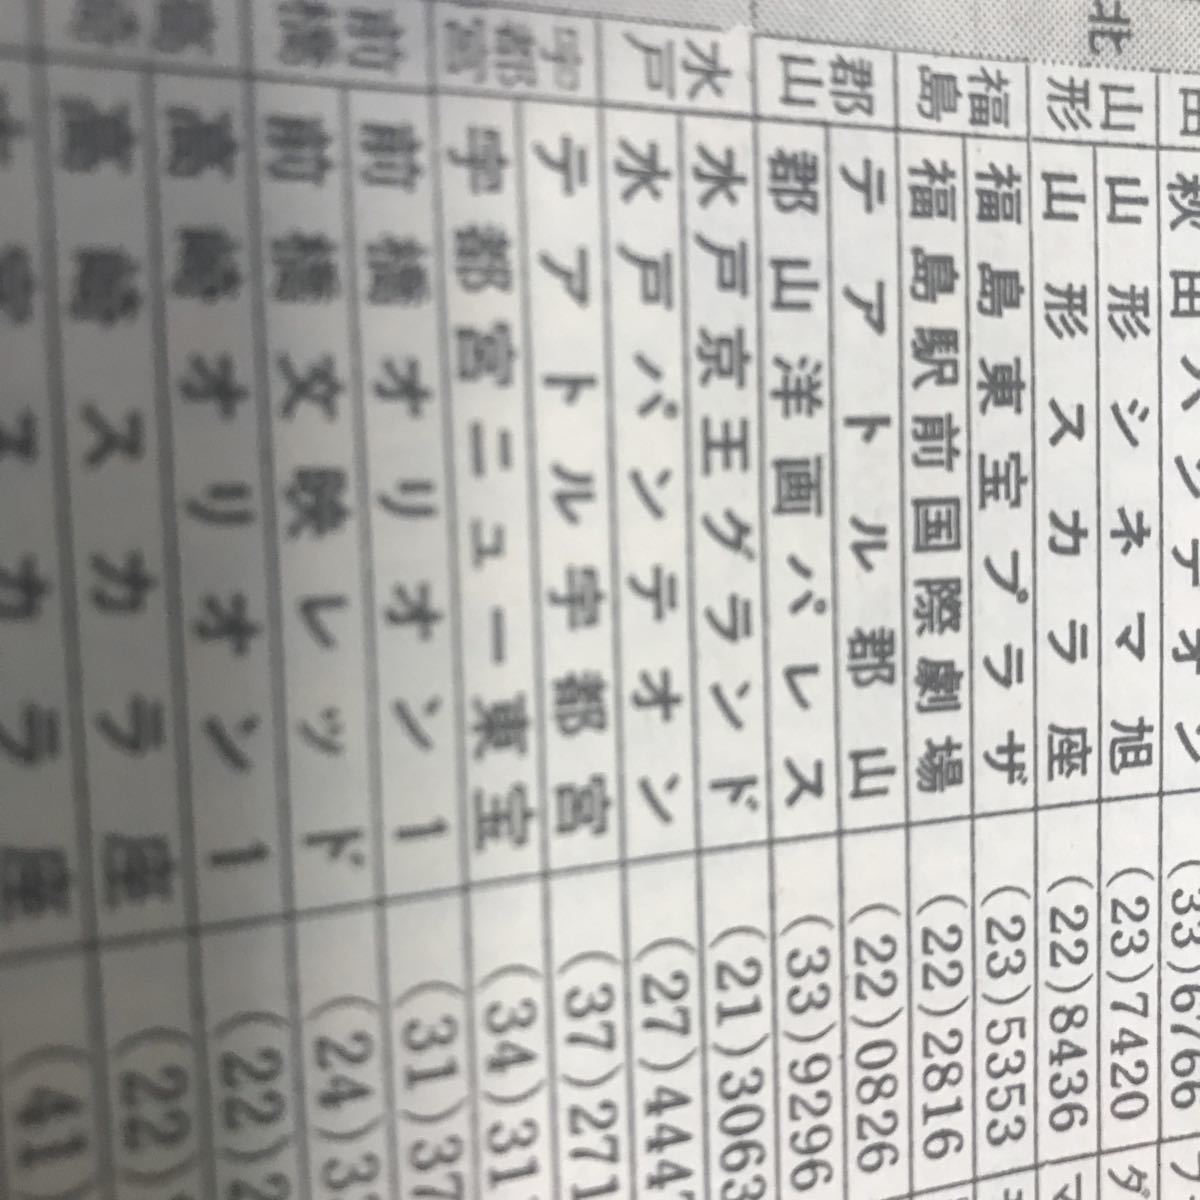 北
田 秋田パンテオン (33)6766
山形 山形シネマ旭 (23)7420
山形スカラ座 (22)8436
福島 福島東宝プラザ (23)5353
福島駅前国際劇場 (22)2816
郡山 テアトル郡山 (22)0826
郡山洋画パレス (33)9296
水戸 水戸京王グランド (21)3063
水戸パンテオン (27)444
宇都宮 テアトル宇都宮 (37)271
宇都宮ニュー東宝 (34)31
前橋 前橋オリオン1 (31)37
前橋文映レッド (24)3
高崎 高崎オリオン1 (22)2
高崎スカラ座 (22)
宮スカラ座 (41)